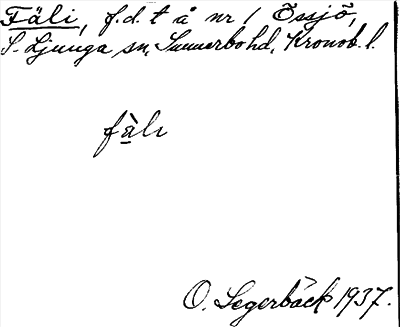 Fäli, f.d. t å nr 1 Össjö,
S. Ljunga sn, Sunnerbo hd, Kronob. l.
fàlı
O. Segerbäck 1937.